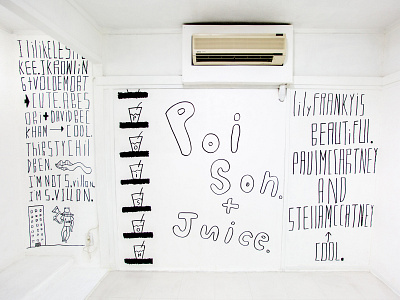 I LIKE LESLIE
KEE. JK ROWLIN
G & VOLDEMORT
→ CUTE. ABES
OGI + DAVID BEC
KHAM → COOL.
THIRSTY CHIL
DREN.
I'M NOT S. villon.
I'M S. VILLON.
Poi
Son.
+
Juice.
lily FRANKY is
BEAUTIFUL.
PAUL MCCARTNEY
AND
STELLA MCCARTNEY
↑
COOL.